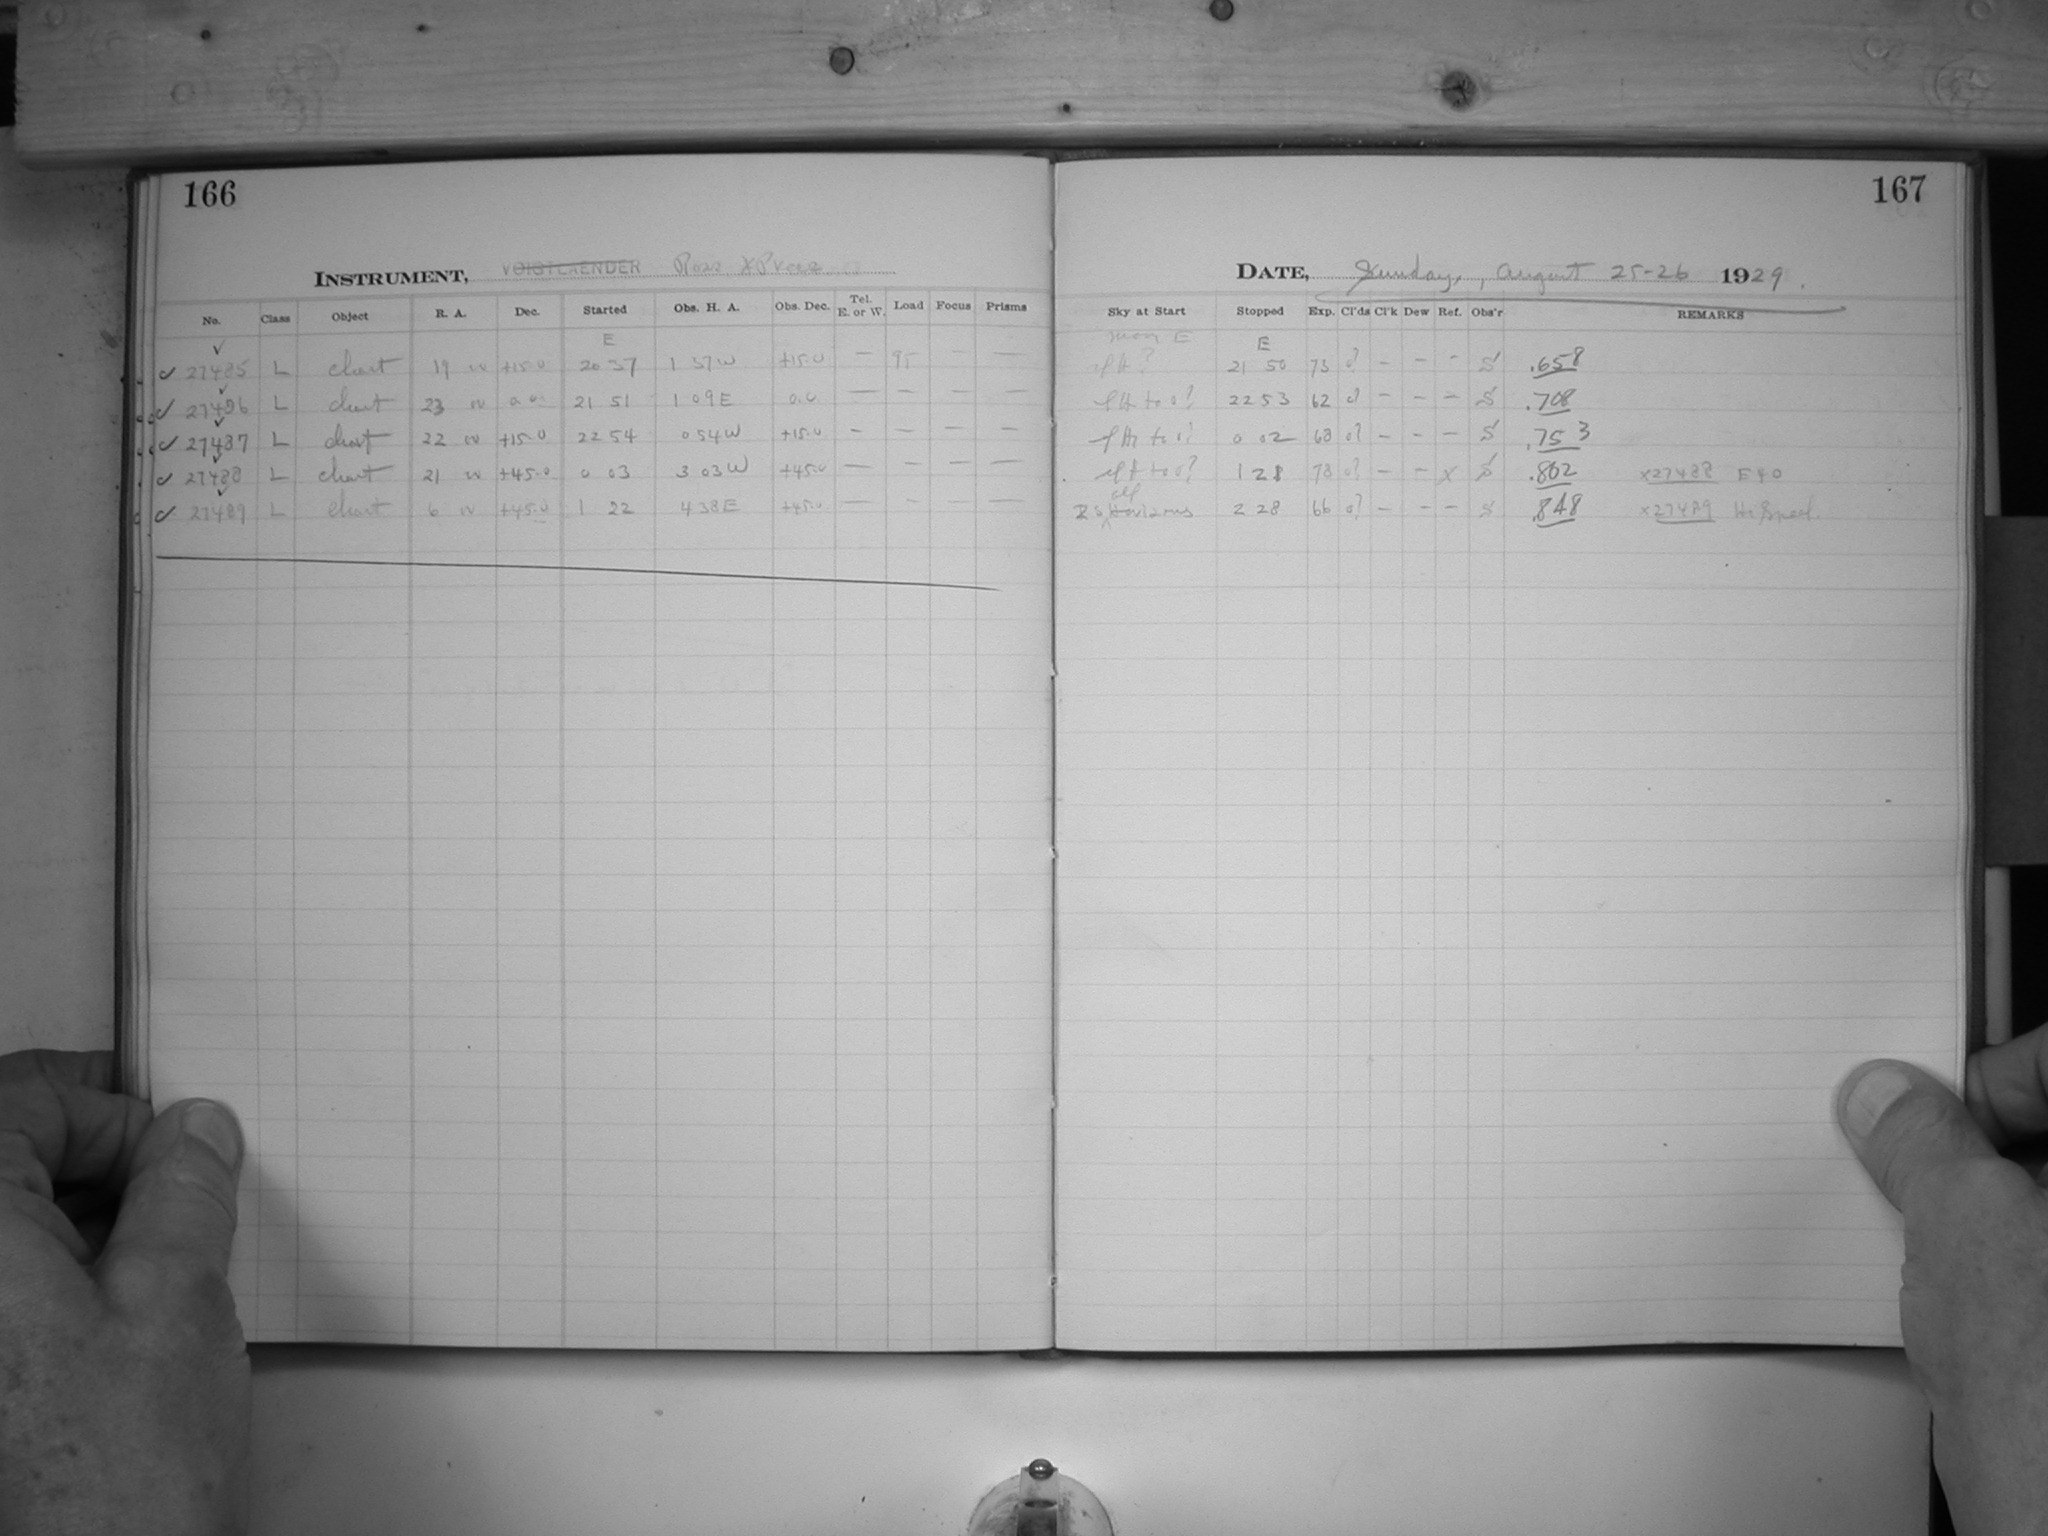 166
INSTRUMENT, VOIGTLAENDER Ross Xpres
No. Class Object R. A. Dec. Started Obs. H. A. Obs. Dec. Tel. E. or W. Load Focus Prisms
E
27485 L chart 19 +15.0 20 37 1 37 W +15.0 — 95 — —
27486 L chart 23 0.0 21 51 1 09 E 0.0 — — — —
27487 L chart 22 +15.0 22 54 0 54 W +15.0 — — — —
27488 L chart 21 +45.0 0 03 3 03 W +45.0 — — — —
27489 L chart 6 +45.0 1 22 4 38 E +45.0 — — — —
167
DATE, Sunday, August 25-26 1929.
Sky at Start Stopped Exp. Cl'ds Cl'k Dew Ref. Obs'r REMARKS
E
21 50 73 0? — — — S .658
22 53 62 0? — — — S .708
0 02 68 0? — — — S .753
1 28 78 0? — — x S .802 x27488
Horizons 2 28 66 0? — — — S .848 x27489 Hi Speed